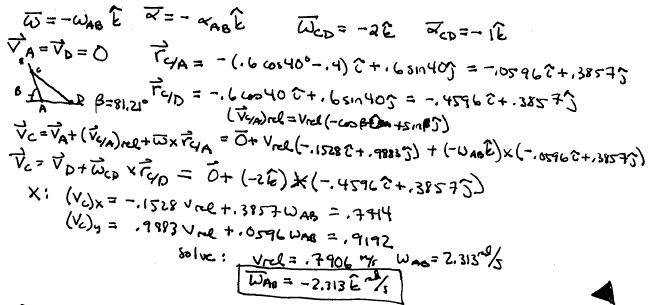 ω⃗ = -ω_AB k̂   α⃗ = -α_AB k̂   ω⃗_CD = -2k̂   α⃗_CD = -1k̂
V⃗_A = V⃗_D = 0   r⃗_C/A = -(.6 cos40° - .4) î + .6 sin40 ĵ = -.0596 î + .3857 ĵ
C
B
A
D
β = 81.21°   r⃗_C/D = -.6 cos40 î + .6 sin40 ĵ = -.4596 î + .3857 ĵ
(V⃗_C/A)rel = Vrel(-cosβ î + sinβ ĵ)
V⃗_C = V⃗_A + (V⃗_C/A)rel + ω⃗ × r⃗_C/A = 0⃗ + Vrel(-.1528 î + .9883 ĵ) + (-ω_AB k̂) × (-.0596 î + .3857 ĵ)
V⃗_C = V⃗_D + ω⃗_CD × r⃗_C/D = 0⃗ + (-2k̂) × (-.4596 î + .3857 ĵ)
X: (V_C)x = -.1528 Vrel + .3857 ω_AB = .7714
(V_C)y = .9883 Vrel + .0596 ω_AB = .9192
Solve: Vrel = .7906 m/s   ω_AB = 2.313 rad/s
ω⃗_AB = -2.313 k̂ rad/s